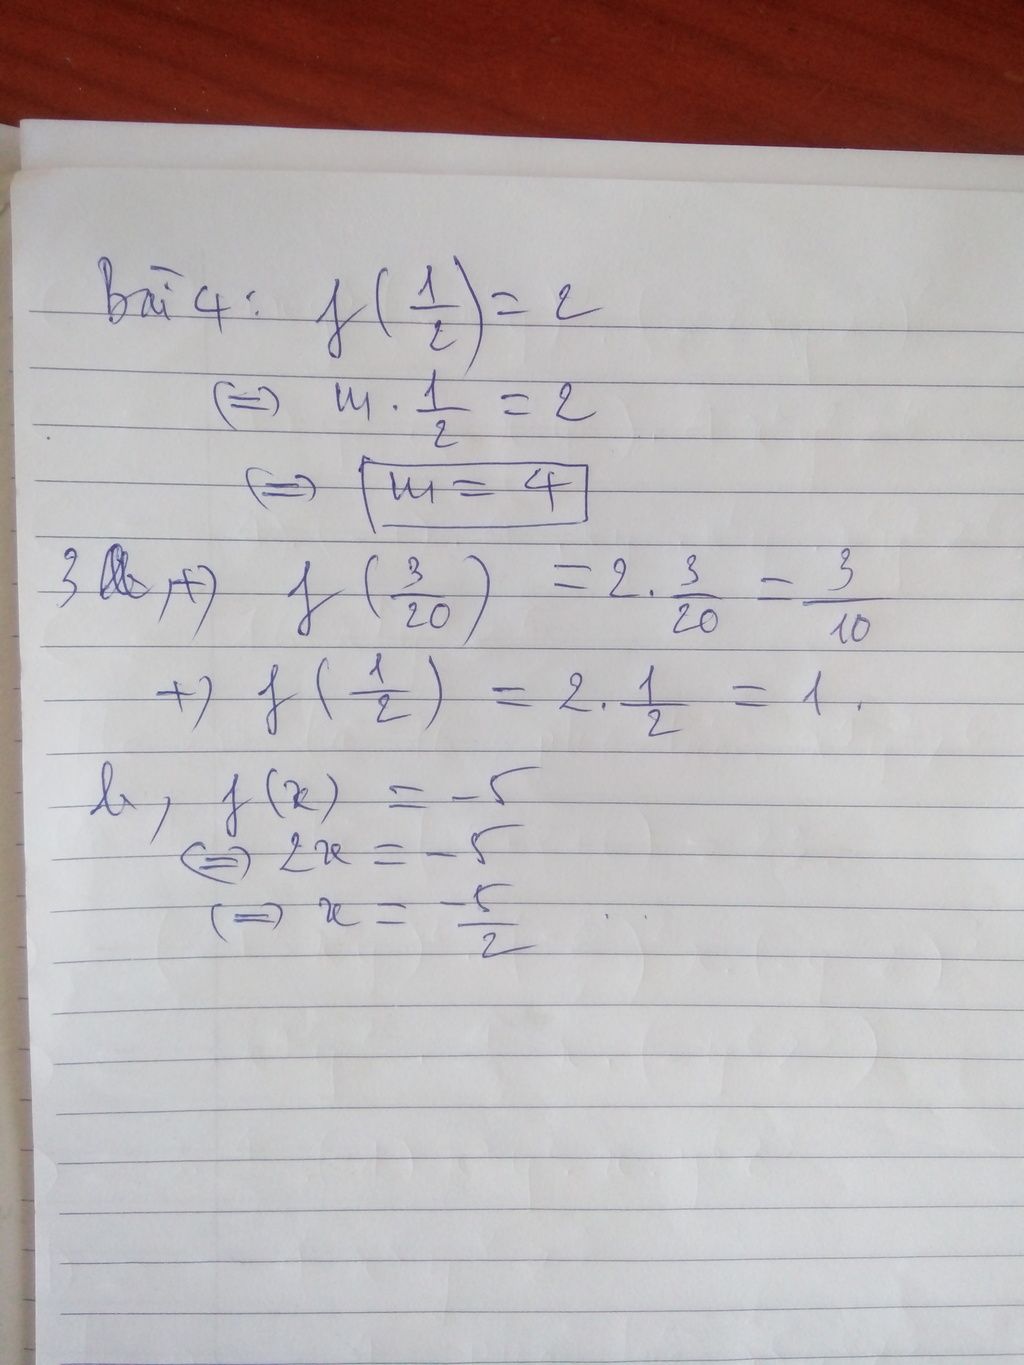 Bài 4: f(1/2) = 2
(=) m . 1/2 = 2
(=) m = 4
3 , +) f(3/20) = 2 . 3/20 = 3/10
+) f(1/2) = 2 . 1/2 = 1 .
b, f(x) = -5
(=) 2x = -5
(=) x = -5/2